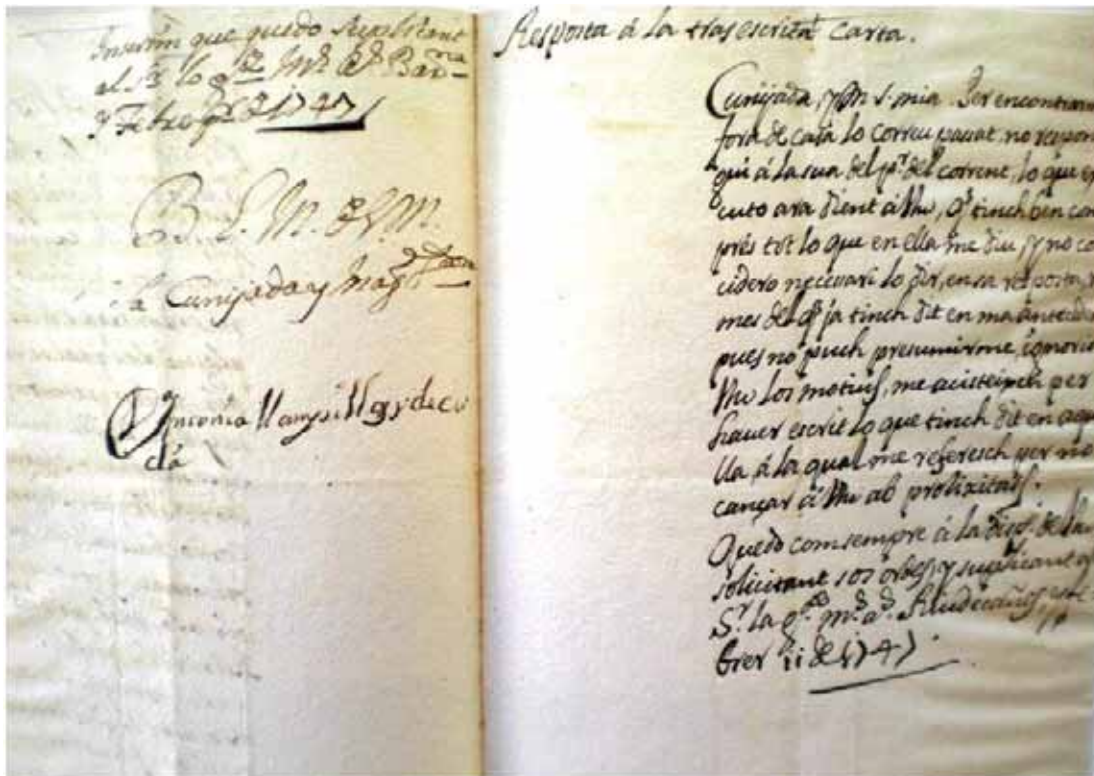 Interim que quedo suplicant
al Sr. lo gde. Ms. As. Barna.
y Febrer de 1747
B. L. M. de V. M.
sa Cunÿada y
Antonia
Resposta á la trasescrita Carta.
Cunÿada, y m s. mia. Per encontrarm
fora de casa lo correu passat, no respon
gui á la sua del pr. del corrent, lo que ex
cuto ara dient á Vm, q. tinch ben com
prés tot lo que en ella me diu, y no co
cidero necessari lo dir, en sa resposta,
mes del q. ja tinch dit en ma anteced
pues no puch presumirme, ignoria
Vm los motius, me acisteixen per
haver escrit lo que tinch dit en aqu
lla á la qual me referesch per no
cançar á Vm ab prolixitats.
Quedo com sempre á la disp. de Vm
solicitant sos ordes, y suplicant al
Sr. la gde. ms. as. Riudecañas, y Fe
brer 11 de 1747